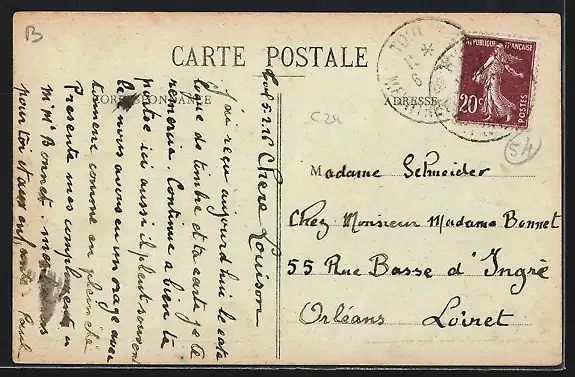 B
CARTE POSTALE
CORRESPONDANCE
ADRESSE
RÉPUBLIQUE FRANÇAISE
20c
POSTES
TOUL
C24
54
Toul 5.2.26 Chere Louison
J'ai reçu aujourd'hui le cata
logue de timbre et ta carte je te
remercie. Continue a bien te
porter ici aussi il pleut souvent
le nous avons eu un orage avec
tonnerre comme en plein été
Presente mes compliments a
Mr Me Bonnet.
pour toi et aux enfants. Paul
Madame Schneider
Chez Monsieur Madame Bonnet
55 Rue Basse d'Ingré
Orléans Loiret